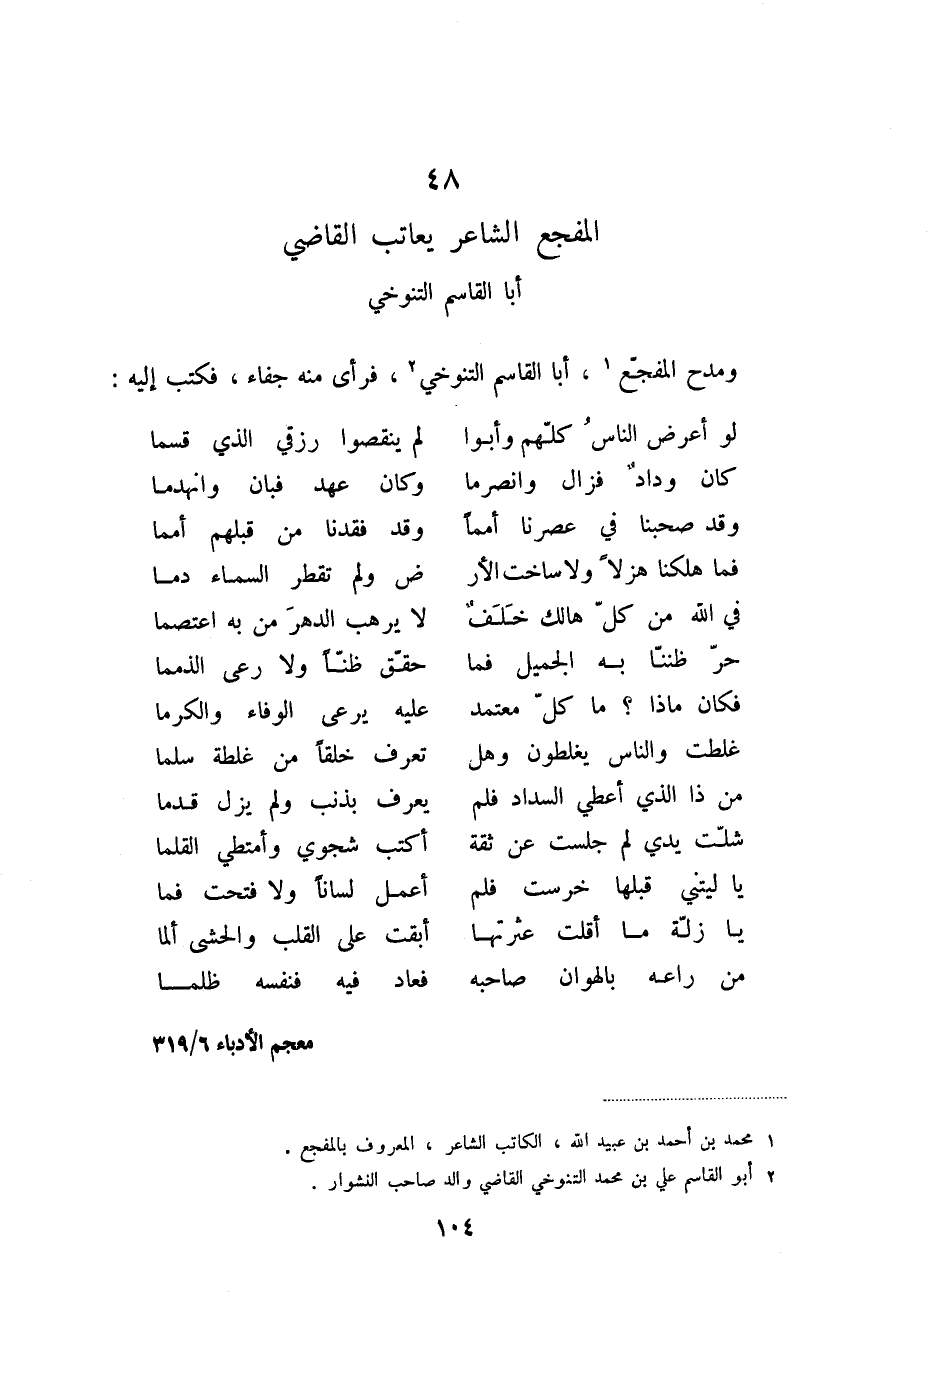 ٤٨
المفجع الشاعر يعاتب القاضي
أبا القاسم التنوخي
ومدح المفجّع ١ ، أبا القاسم التنوخي٢ ، فرأى منه جفاء ، فكتب إليه :
لو أعرض الناسُ كلّهم وأبوا لم ينقصوا رزقي الذي قسما
كان ودادٌ فزال وانصرما وكان عهد فبان وانهدما
وقد صحبنا في عصرنا أمماً وقد فقدنا من قبلهم أمما
فما هلكنا هزلاً ولا ساخت الأر ض ولم تقطر السماء دما
في الله من كلّ هالك خلَفٌ لا يرهب الدهرَ من به اعتصما
حرّ ظننّا به الجميل فما حقّق ظنّاً ولا رعى الذمما
فكان ماذا ؟ ما كلّ معتمد عليه يرعى الوفاء والكرما
غلطت والناس يغلطون وهل تعرف خلقاً من غلطة سلما
من ذا الذي أعطي السداد فلم يعرف بذنب ولم يزل قدما
شلّت يدي لم جلست عن ثقة أكتب شجوي وأمتطي القلما
يا ليتني قبلها خرست فلم أعمل لساناً ولا فتحت فما
يا زلّة ما أقلت عثرتها أبقت على القلب والحشى ألما
من راعه بالهوان صاحبه فعاد فيه فنفسه ظلما
معجم الأدباء ٣١٩/٦
١ محمد بن أحمد بن عبيد الله ، الكاتب الشاعر ، المعروف بالمفجع .
٢ أبو القاسم علي بن محمد التنوخي القاضي والد صاحب النشوار .
١٠٤